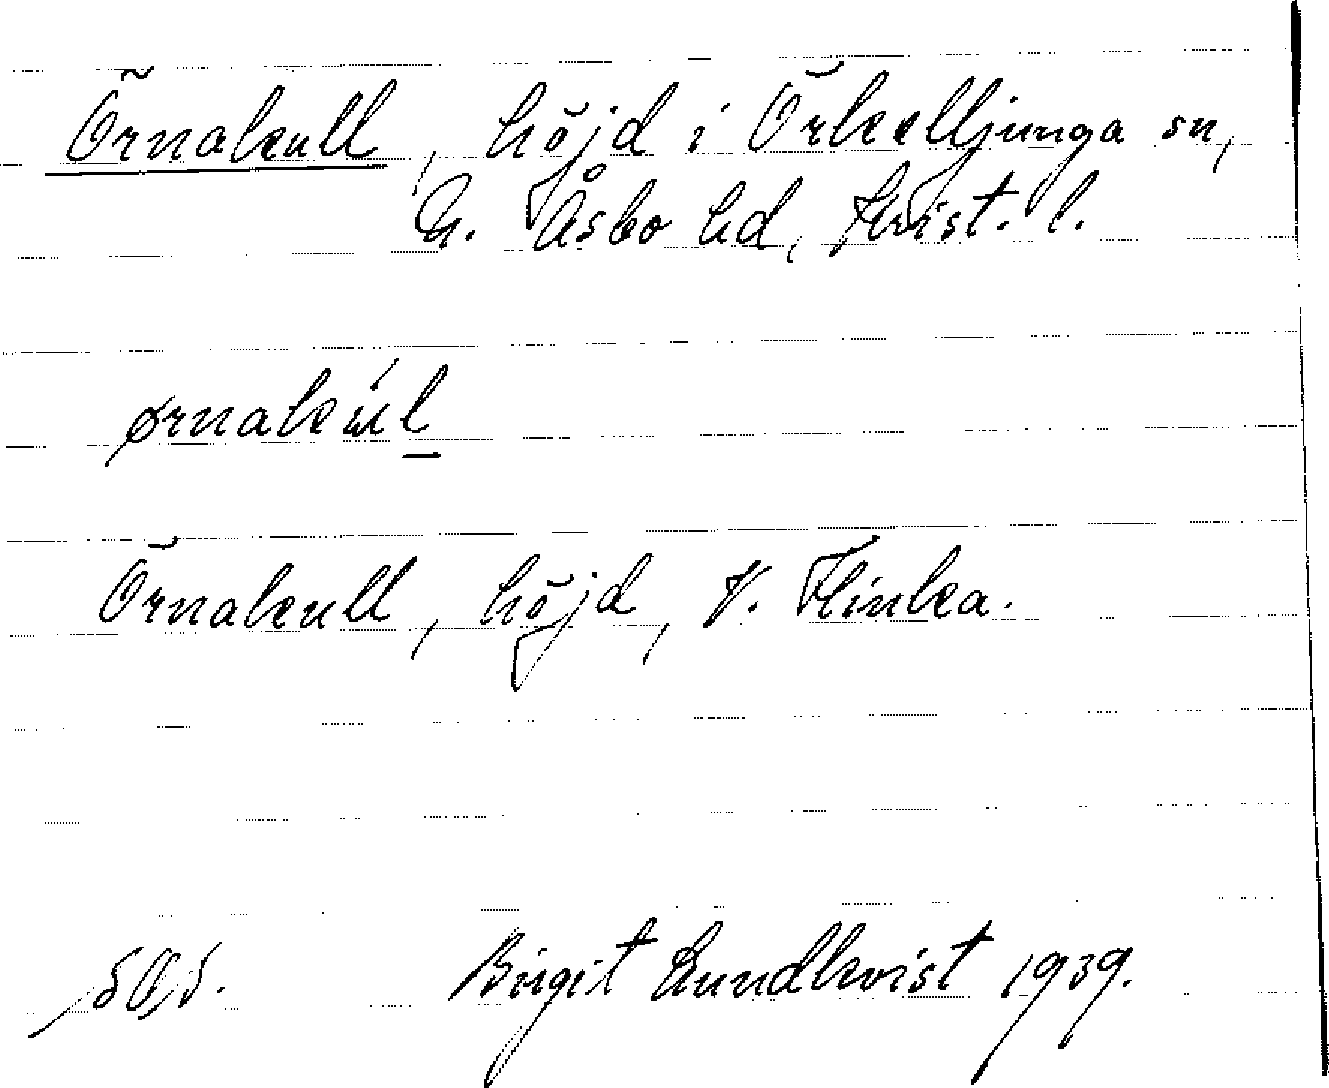 Örnakull, höjd i Örkelljunga sn,
G. Åsbo hd, Krist. l.
ørnakúl
Örnakull, höjd, V. Flinka.
Birgit Lundkvist 1939.